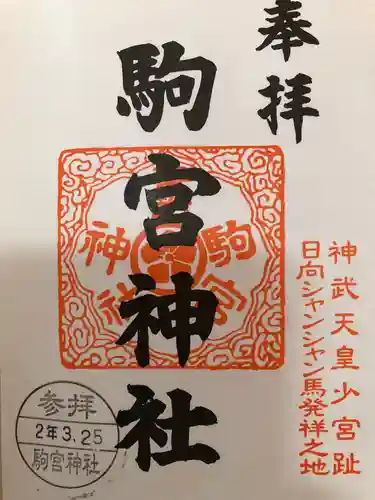 奉拝
神武天皇少宮趾
日向シャンシャン馬発祥之地
駒宮神社
駒宮神社
参拝
2年3.25
駒宮神社